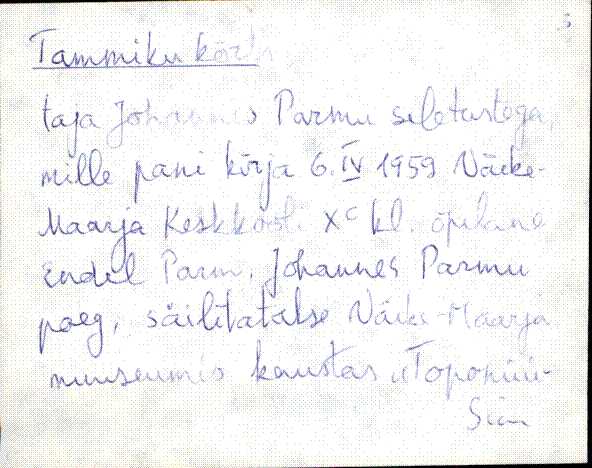 3
Tammiku kõrts
taja Johannes Parmu seletustega,
mille pani kirja 6. IV 1959 Väike-
Maarja Keskkooli Xc kl. õpilane
Endel Parm, Johannes Parmu
poeg, säilitatakse Väike-Maarja
muuseumis kaustas „Toponüü-